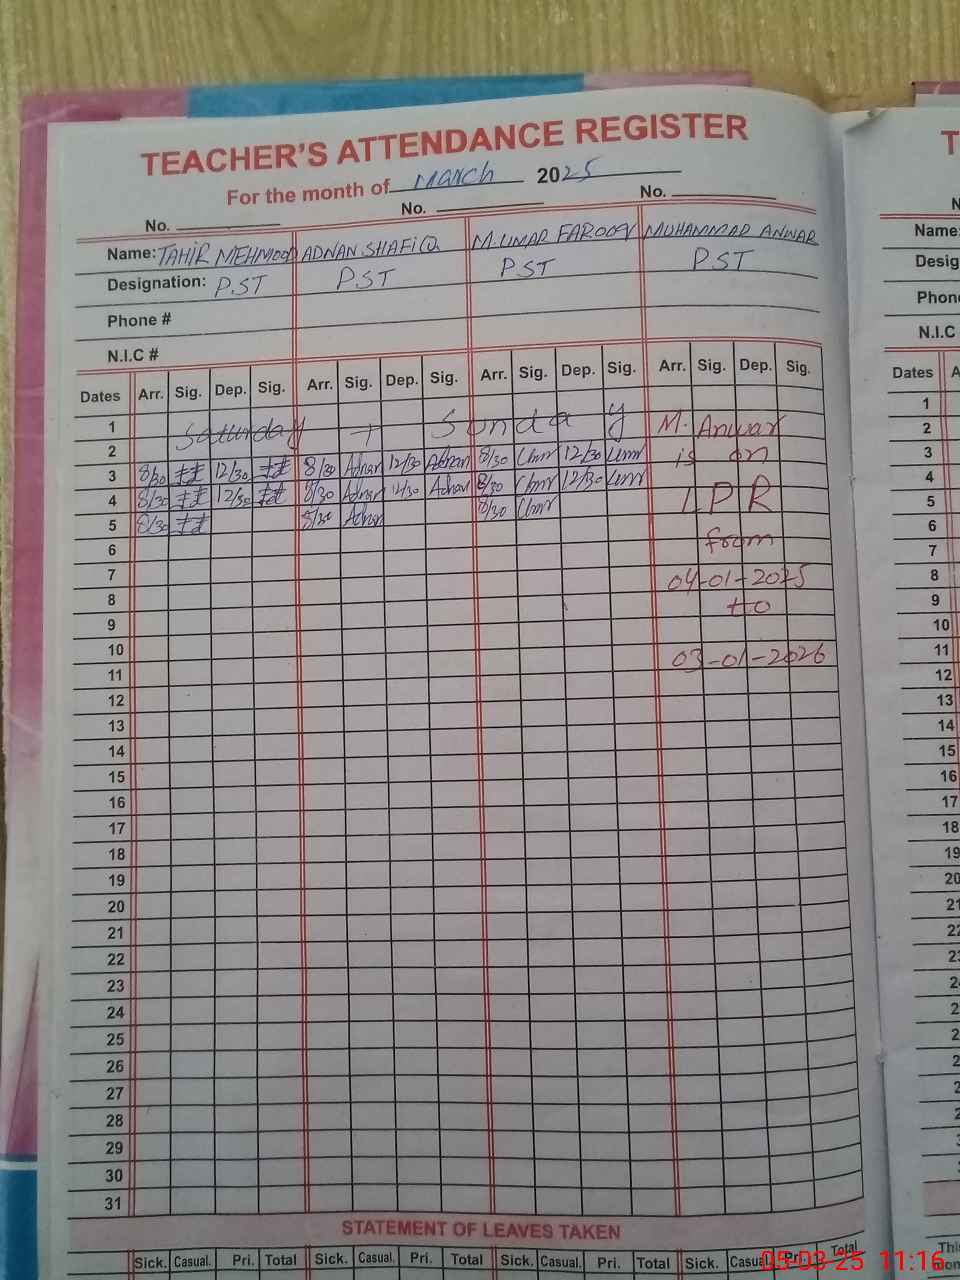 TEACHER'S ATTENDANCE REGISTER
For the month of March 2025
No. No. No.
Name: TAHIR MEHMOOD ADNAN SHAFIQ M. UMAR FAROOQ MUHAMMAD ANWAR
Designation: P.ST PST PST PST
Phone #
N.I.C #
Dates Arr. Sig. Dep. Sig. Arr. Sig. Dep. Sig. Arr. Sig. Dep. Sig. Arr. Sig. Dep. Sig.
1 Saturday + Sunday M. Anwar
2 is on
3 8/30 12/30 8/30 Adnan 12/30 Adnan 8/30 Umr 12/30 Umr
4 8/30 12/30 8/30 Adnan 12/30 Adnan 8/30 Umr 12/30 Umr LPR
5 8/30 8/30 Adnan 8/30 Umr
6 from
7
8 04-01-2025
9 to
10
11 03-01-2026
12
13
14
15
16
17
18
19
20
21
22
23
24
25
26
27
28
29
30
31
STATEMENT OF LEAVES TAKEN
Sick. Casual. Pri. Total Sick. Casual. Pri. Total Sick. Casual. Pri. Total Sick. Casual. Pri. Total
Name:
Phone
N.I.C
Dates
1
2
3
4
5
6
7
8
9
10
11
12
13
14
15
16
17
18
19
20
21
22
05-03-25 11:16